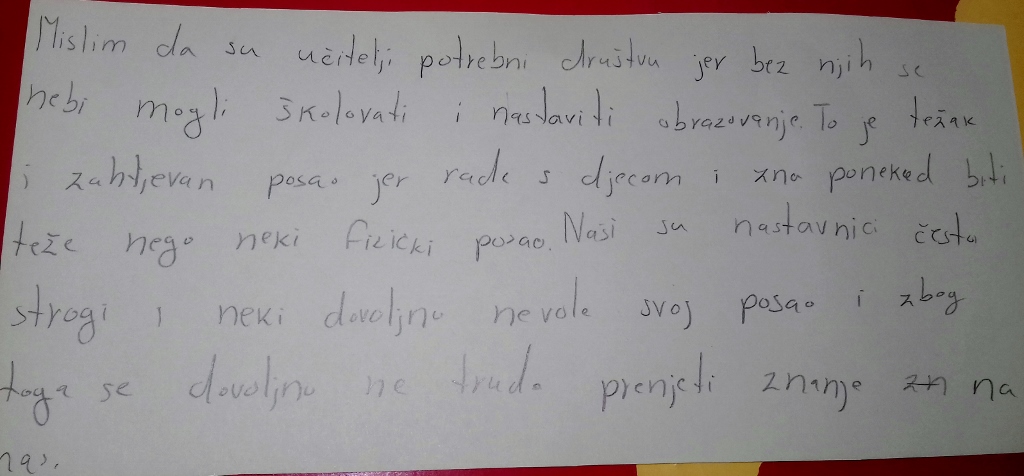 Mislim da su učitelji potrebni društvu jer bez njih se
nebi mogli školovati i nastaviti obrazovanje. To je težak
i zahtjevan posao jer rade s djecom i zna ponekad biti
teže nego neki fizički posao. Naši su nastavnici često
strogi i neki dovoljno nevole svoj posao i zbog
toga se dovoljno ne trude prenjeti znanje zn na
nas.